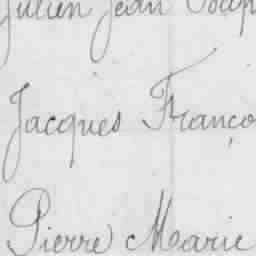 Julien Jean Josep
Jacques Franço
Pierre Marie